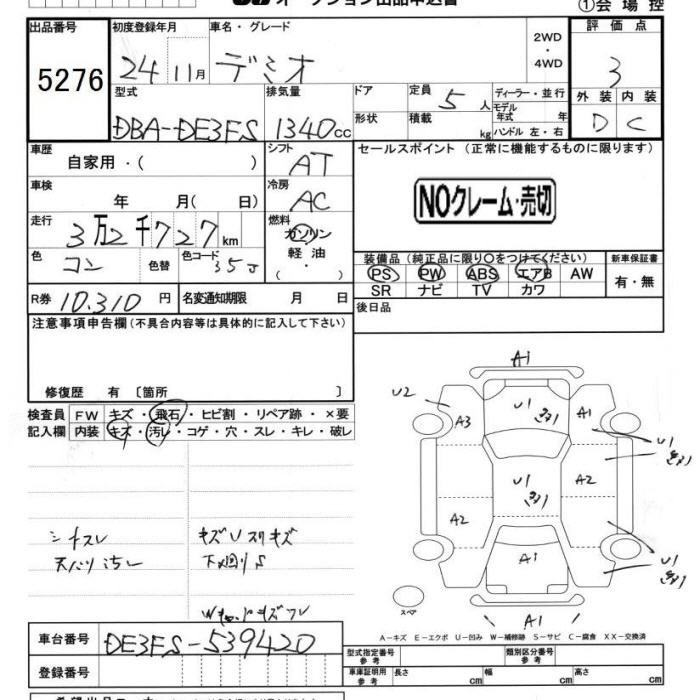 オークション出品申込書
①会場控
出品番号 初度登録年月 車名・グレード 2WD・4WD 評価点
5276 24年11月 デミオ 3
型式 排気量 ドア 定員 5人 ディーラー・並行 外装 内装
DBA-DE3FS 1340cc 形状 積載 kg モデル年式 年 ハンドル 左・右 D C
車歴 シフト セールスポイント (正常に機能するものに限ります)
自家用・( ) AT
車検 冷房
年 月( 日) AC NOクレーム・売切
走行 燃料
3万2千727km ガソリン
色 色替 色コード 軽油・( ) 装備品(純正品に限り○をつけてください) 新車保証書
コン 35J PS PW ABS エアB AW 有・無
SR ナビ TV カワ
R券 10,310円 名変通知期限 月 日 後日品
注意事項申告欄(不具合内容等は具体的に記入して下さい)
修復歴 有 〔箇所 〕
検査員 FW キズ・飛石・ヒビ割・リペア跡・×要
記入欄 内装 キズ・汚レ・コゲ・穴・スレ・キレ・破レ
A1
U2
A3
U1
A1
U1
A2
U1
A2
A1
U1
スペア
A1
シートスレ キズUスリキズ
下メ回りS
A-キズ E-エクボ U-凹み W-補修跡 S-サビ C-腐食 XX-交換済
車台番号 DE3FS-539420
型式指定番号 参考 類別区分番号 参考
登録番号 車庫証明用 参考 長さ cm 幅 cm 高さ cm